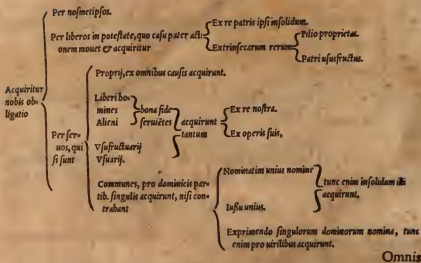 Acquiritur
nobis ob-
ligatio
Per nosmetipsos.
Per liberos in potestate, quo casu pater acti-
onem mouet & acquiritur
Ex re patris ipsi insolidum.
Extrinsecarum rerum
Filio proprietas.
Patri usufructus.
Per ser-
uos, qui
si sunt
Proprij, ex omnibus causis acquirunt.
Liberi ho-
mines
Alieni
bona fide
seruiētes
Vsufructuarij
Vsuarij.
acquirunt
tantum
Ex re nostra.
Ex operis suis,
Communes, pro dominicis par-
tib. singulis acquirunt, nisi con-
trahant
Nominatim unius nomine
Iussu unius.
tunc enim insolidum illi
acquirunt,
Exprimendo singulorum dominorum nomina, tunc
enim pro uirilibus acquirunt.
Omnis